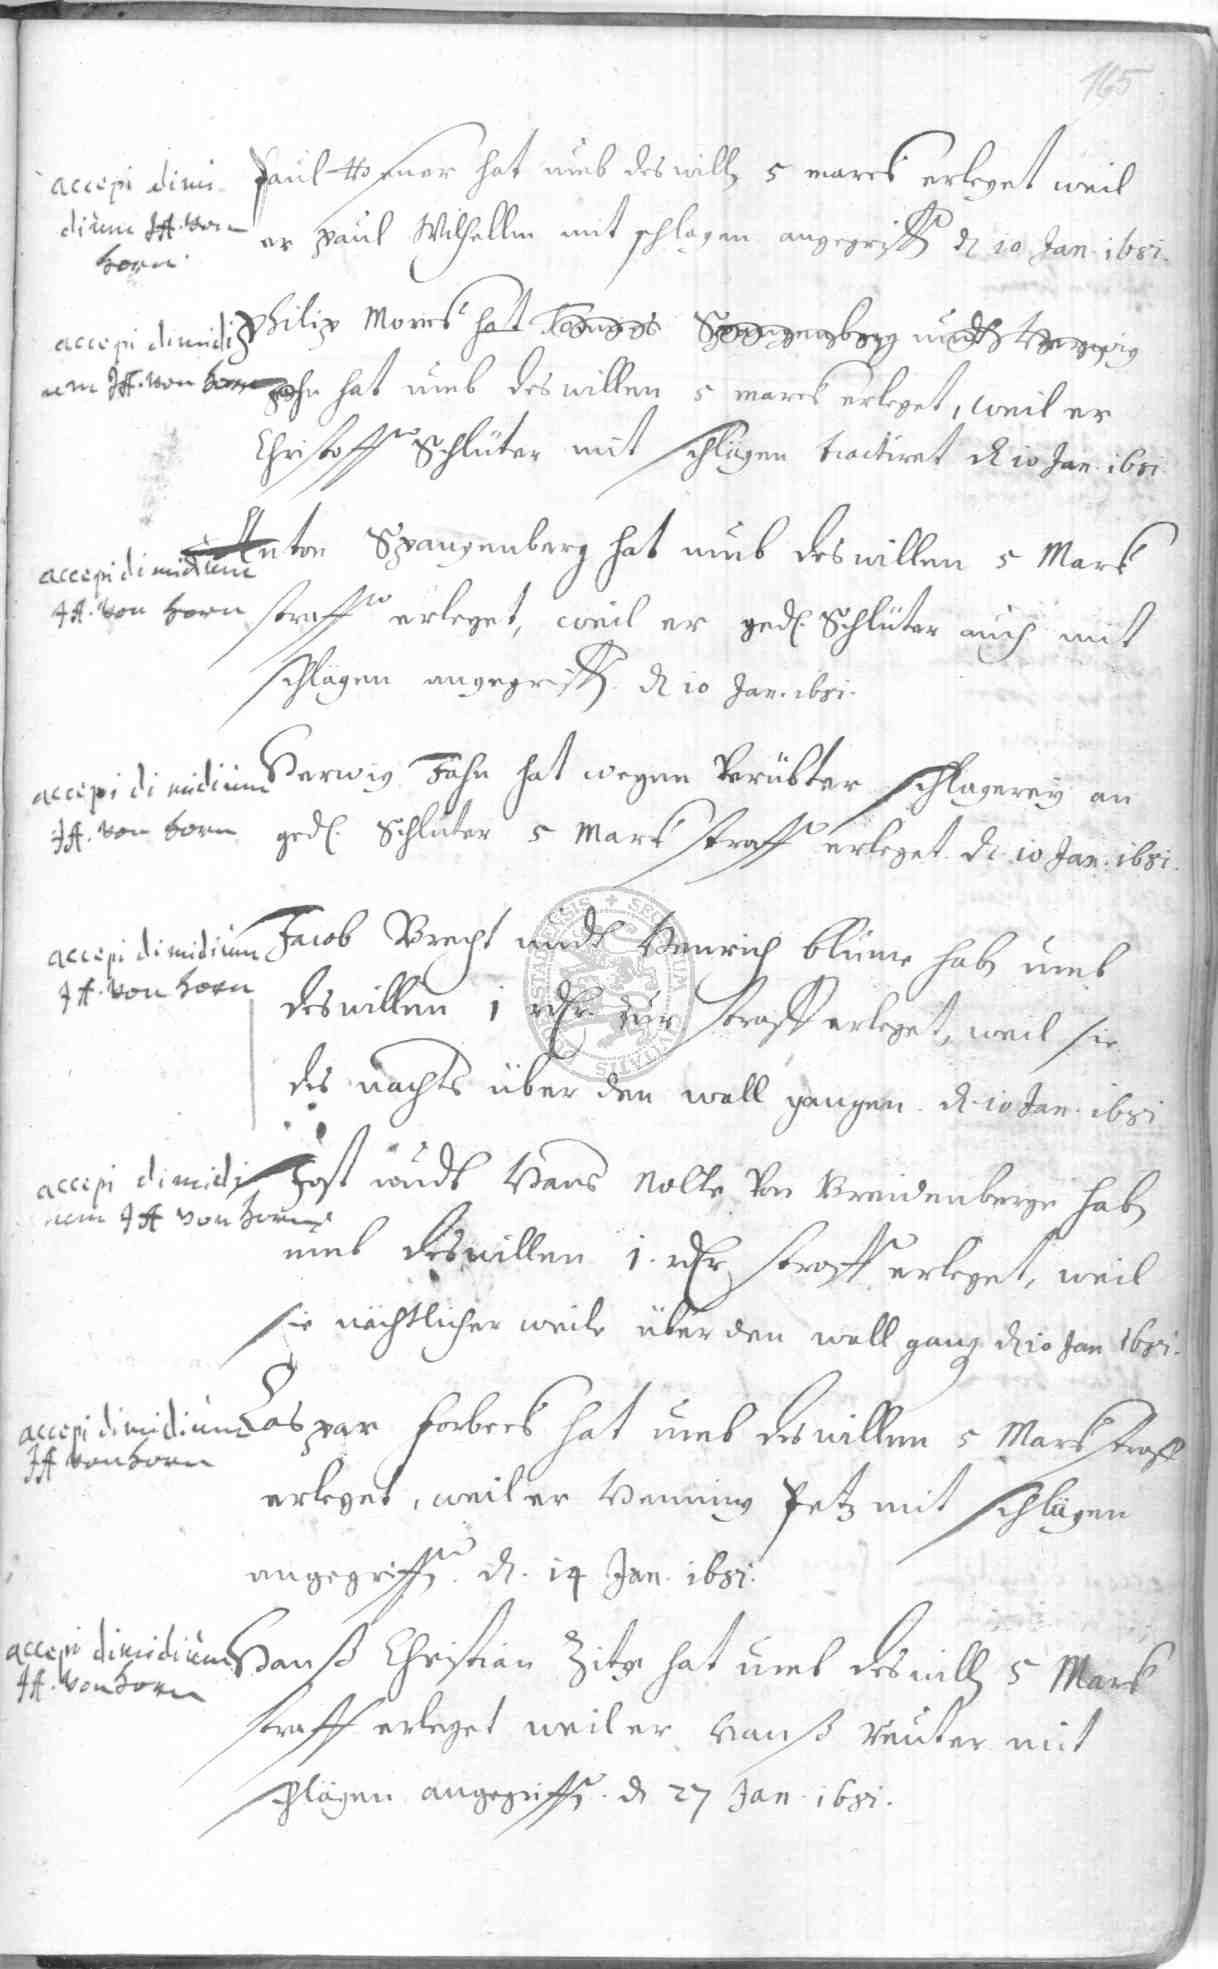 165
accepi dimi-
dium JA. von
Horn.
Paul hat umb deswilln 5 marck erleget weil
er Paul Wilhellm mit schlagen angegriffen d 10 Jan. 1681.
accepi dimidi
um JA. von Horn
Philip Mones hat Spangenberg undt Herwig
Fahn hat umb deswillen 5 marck erleget, weil er
Christoff Schlüter mit schlägen tractiret d 10 Jan. 1681
accepi dimidium
JA. von Horn
Anton Spangenberg hat umb deswillen 5 Marck
straff erleget, weil er gedl. Schlüter auch mit
schlägen angegriffn d 10 Jan. 1681.
accepi dimidium
JA. von Horn
Herwig Fahn hat wegen verübter schlagerey an
gedl. Schluter 5 Marck straff erleget d 10 Jan. 1681.
accepi dimidium
JA. von Horn
Jacob Brecht undt Henrich blume habn umb
deswillen 1 rthlr zur straff erleget, weil sie
des nachts über den wall gangen. d. 10 Jan. 1681
accepi dimidi
um JA von Horn
Jost undt Hans Nolte von Breidenberge habn
umb deswillen 1. rthlr straff erleget, weil
sie nächtlicher weile über den wall gang d 10 Jan 1681.
accepi dimidium
JA von Horn
Caspar Forbeck hat umb deswillen 5 Marck straff
erleget, weil er Henning Petz mit schlägen
angegriffn. d. 14 Jan. 1681.
accepi dimidium
JA. von Horn
Hanß Christian Zitze hat umb deswilln 5 Marck
straff erleget weil er Hanß Reuter mit
schlägen angegriffn. d 27 Jan. 1681.